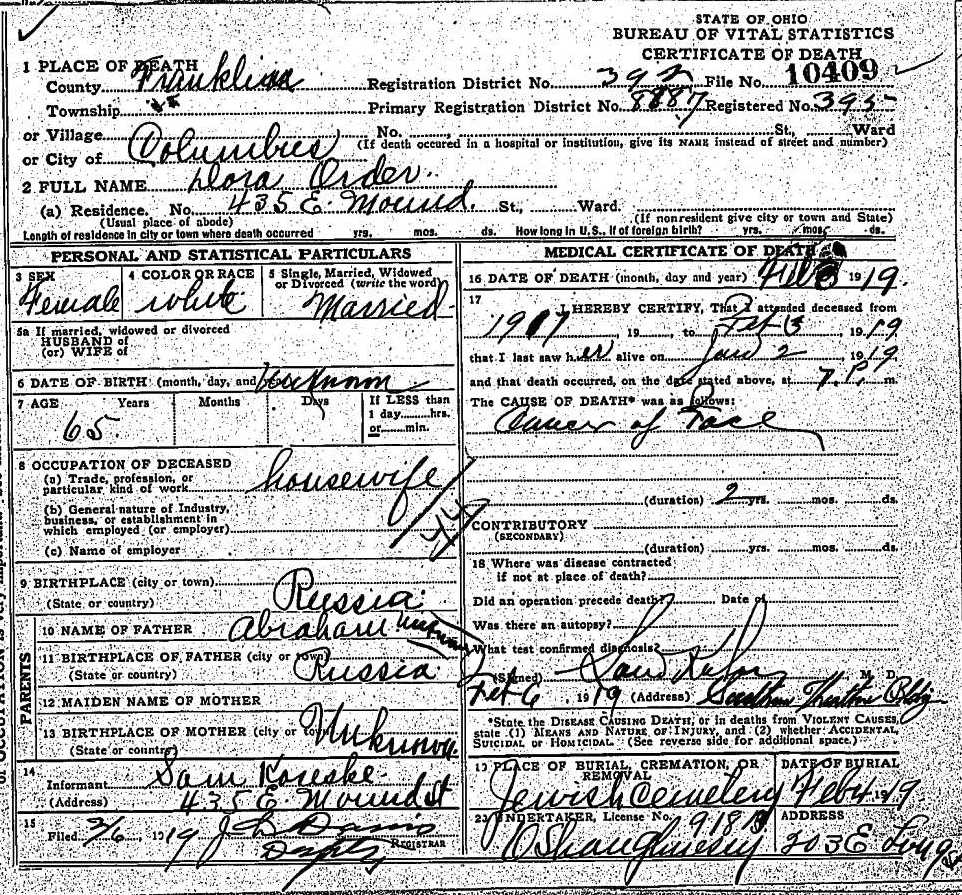 STATE OF OHIO
BUREAU OF VITAL STATISTICS
CERTIFICATE OF DEATH
1 PLACE OF DEATH
County Franklin Registration District No. 392 File No. 10409
Township Primary Registration District No. 8187 Registered No. 395
or Village No. , St., Ward
or City of Columbus (If death occured in a hospital or institution, give its NAME instead of street and number)
2 FULL NAME Dora Order
(a) Residence. No. 435 E. Mound. St., Ward.
(Usual place of abode) (If nonresident give city or town and State)
Length of residence in city or town where death occurred yrs. mos. ds. How long in U.S., if of foreign birth? yrs. mos. ds.
PERSONAL AND STATISTICAL PARTICULARS
3 SEX 4 COLOR OR RACE 5 Single, Married, Widowed
or Divorced (write the word)
Female white Married
5a If married, widowed or divorced
HUSBAND of
(or) WIFE of
6 DATE OF BIRTH (month, day, and Unknown
7 AGE Years Months Days If LESS than
1 day hrs.
or min.
65
8 OCCUPATION OF DECEASED
(a) Trade, profession, or
particular kind of work housewife
(b) General nature of Industry,
business, or establishment in
which employed (or employer)
(c) Name of employer
9 BIRTHPLACE (city or town)
(State or country) Russia
PARENTS
10 NAME OF FATHER Abraham Unknown
11 BIRTHPLACE OF FATHER (city or town)
(State or country) Russia
12 MAIDEN NAME OF MOTHER
13 BIRTHPLACE OF MOTHER (city or
(State or country) Unknown
14
Informant Sam
(Address) 435 E. Mound St
15
Filed 2/6 1919 J L Davis
Deputy REGISTRAR
MEDICAL CERTIFICATE OF DEATH
16 DATE OF DEATH (month, day and year) Feb 3 1919.
17
I HEREBY CERTIFY, That I attended deceased from
1917, 19 , to Feb 3, 1919
that I last saw her alive on Jan 2, 1919.
and that death occurred, on the date stated above, at 7 P. m.
The CAUSE OF DEATH* was as follows:
Cancer of Face
(duration) 2 yrs. mos. ds.
CONTRIBUTORY
(SECONDARY)
(duration) yrs. mos. ds.
18 Where was disease contracted
if not at place of death?
Did an operation precede death? Date of
Was there an autopsy?
What test confirmed diagnosis?
(Signed) M D
Feb 6, 1919 (Address) Southern Theatre Bldg
*State the DISEASE CAUSING DEATH, or in deaths from VIOLENT CAUSES,
state (1) MEANS AND NATURE OF INJURY, and (2) whether ACCIDENTAL,
SUICIDAL or HOMICIDAL. (See reverse side for additional space.)
19 PLACE OF BURIAL, CREMATION, OR
REMOVAL DATE OF BURIAL
Jewish Cemetery Feb 4 1919
20 UNDERTAKER, License No. 918 B ADDRESS
OShaughnessy 203 E Long St